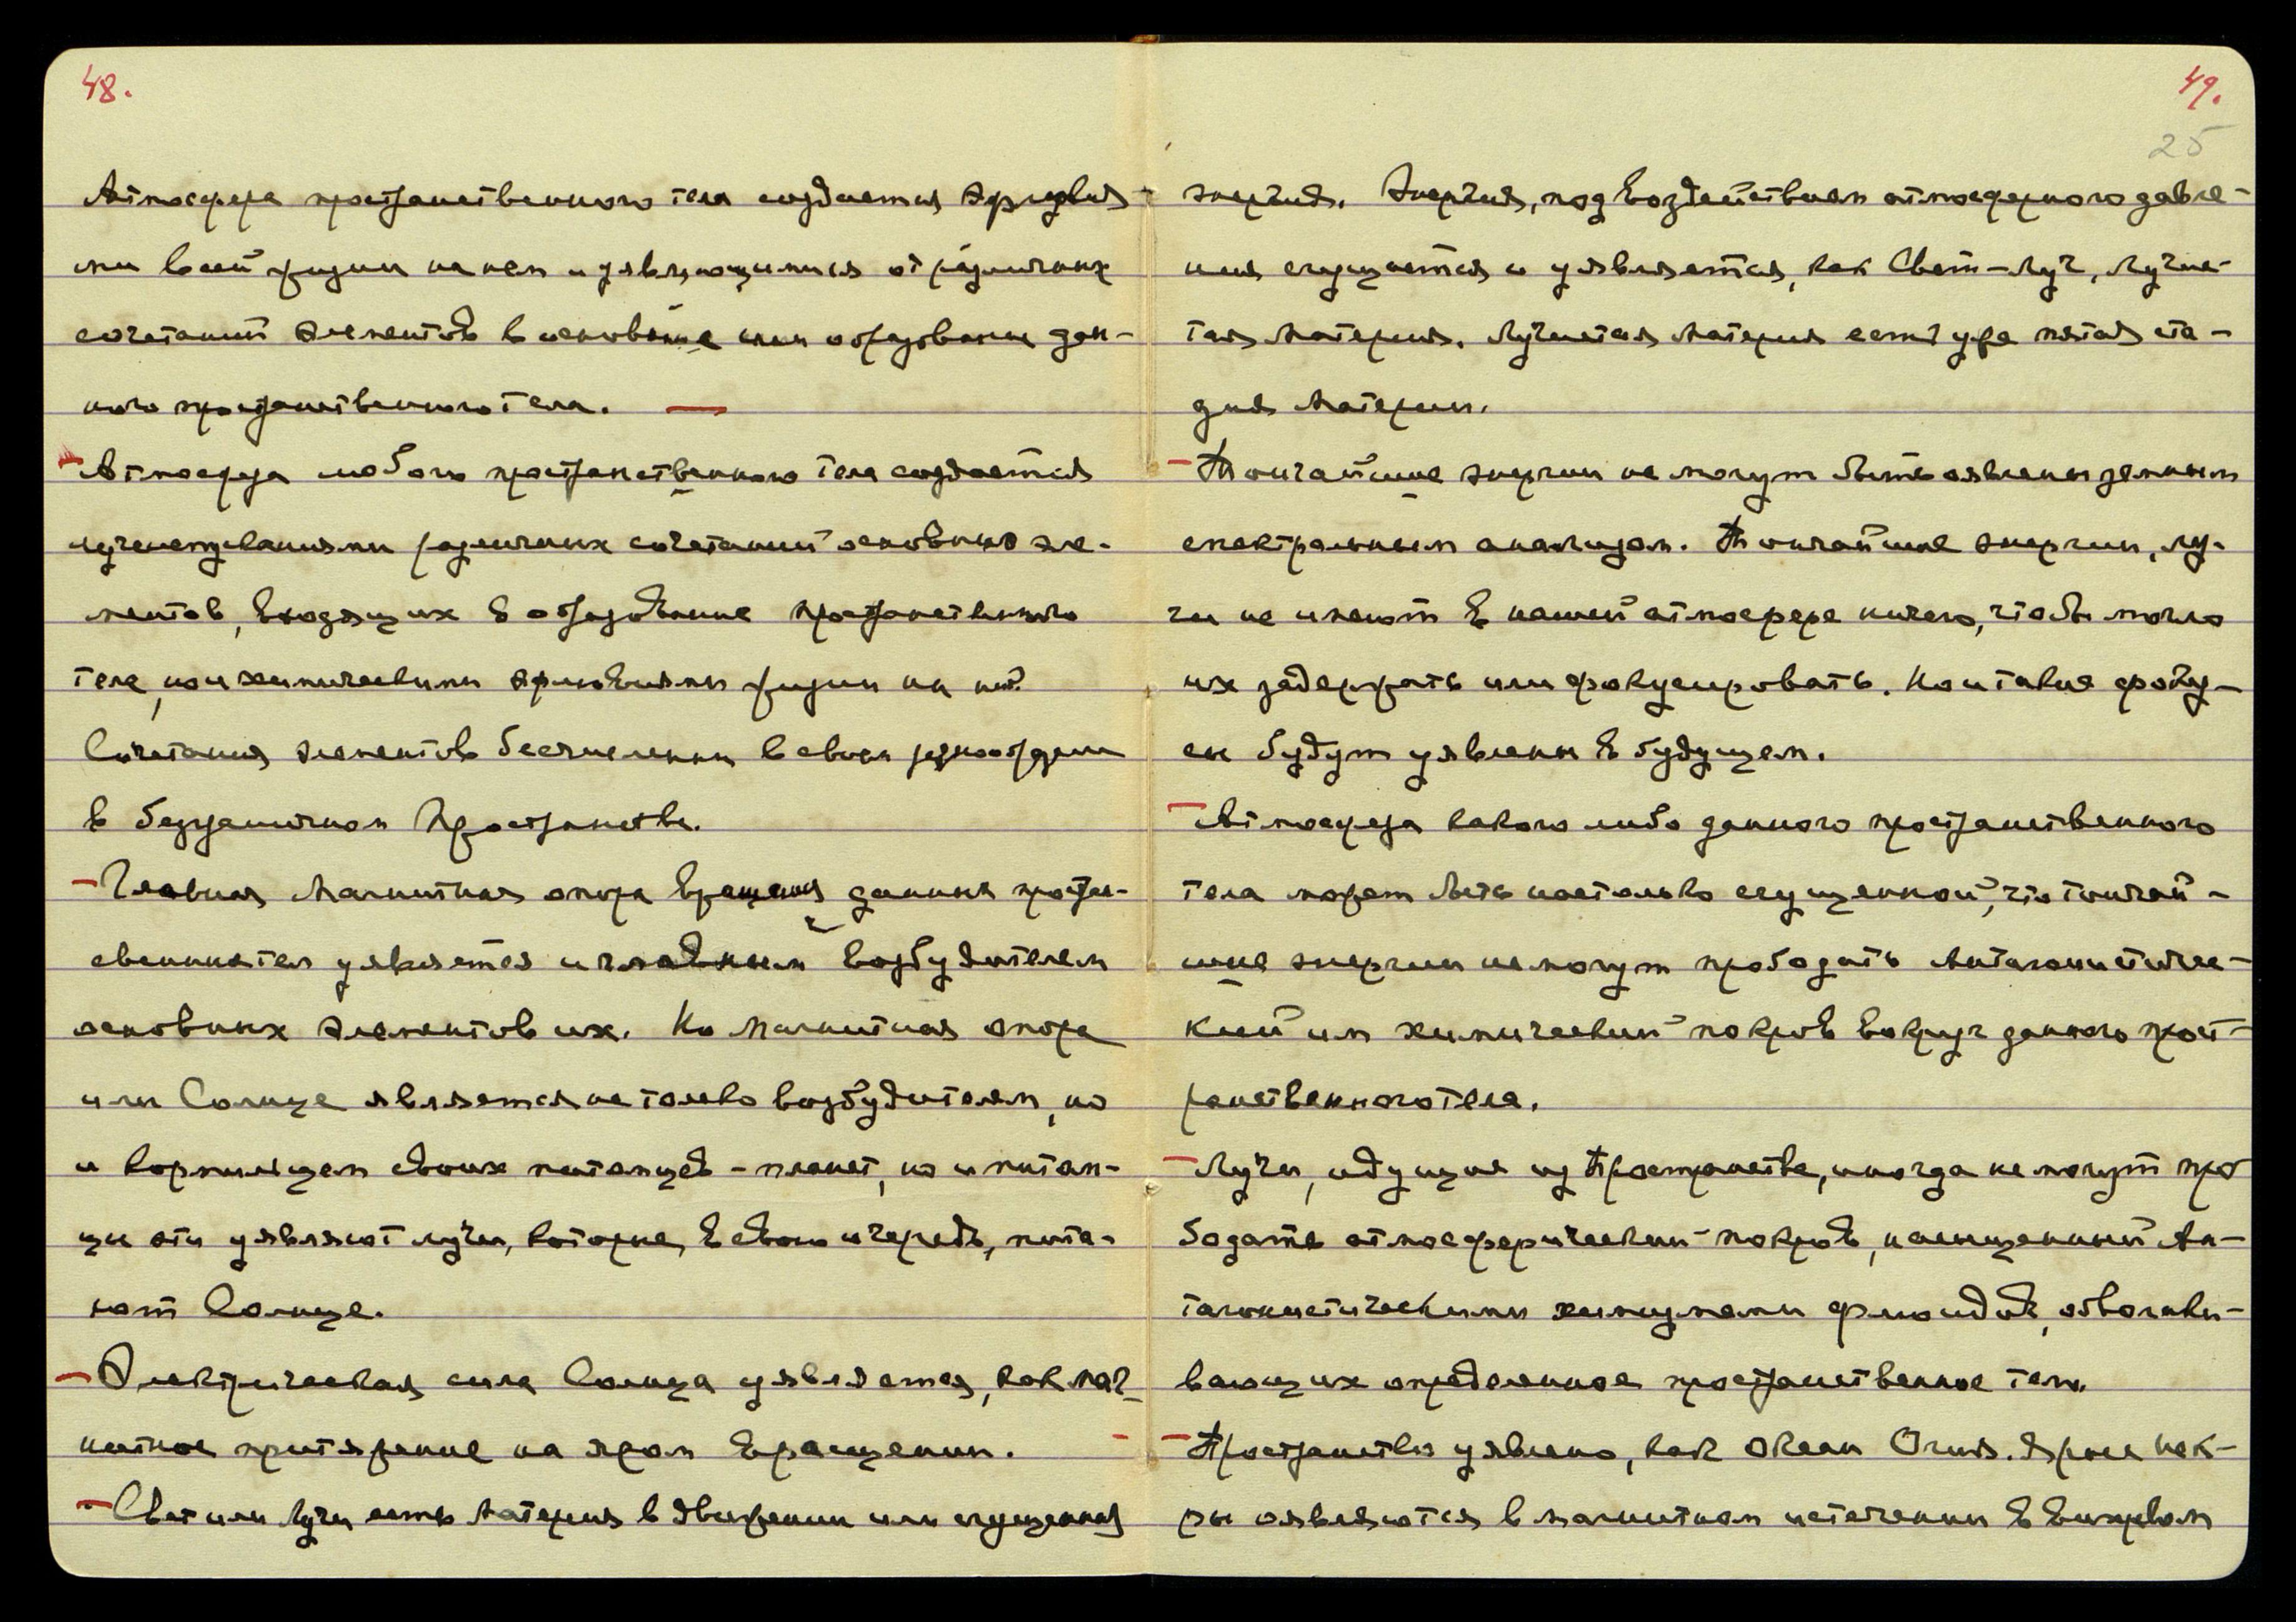 48.
Атмосфера пространственного тела создается эфлювия-
ми всей жизни на нем и уявляющимися от различных
сочетаний элементов в основание или образовании дан-
ного пространственного тела. —
Атмосфера любого пространственного тела создается
лучеиспусканиями различных сочетаний основных эле-
ментов, входящих в образование пространственного
тела, но и химическими эфлювиями жизни на ней.
Сочетания элементов бесчисленны в своем разнообразии
в безграничном Пространстве.
— Главная Магнитная опора вращения данных простран-
ственных тел уявляется и главным возбудителем
основных элементов их. Но магнитная опора
или Солнце является не только возбудителем, но
и кормильцем своих питомцев – планет, но и питом-
цы эти уявляют лучи, которые, в свою очередь, пита-
ют Солнце.
— Электрическая сила Солнца уявляется, как маг-
нитное притяжение на яром вращении.
— Свет или Лучи есть Материя в движении или сгущенная
49.
25
энергия. Энергия, под воздействием атмосферного давле-
ния сгущается и уявляется, как Свет – Луч, Лучис-
тая Материя. Лучистая Материя есть уже пятая ста-
дия Материи.
— Тончайшие энергии не могут быть оявлены земным
спектральным анализом. Тончайшие энергии, лу-
чи не имеют в нашей атмосфере ничего, что бы могло
их задержать или фокусировать. Но и такие фоку-
сы будут уявлены в будущем.
— Атмосфера какого либо данного пространственного
тела может быть настолько сгущенной, что тончай-
шие энергии не могут прободать Антагонистичес-
кий им химический покров вокруг данного прост-
ранственного тела.
— Лучи, идущие из Пространства, иногда не могут про
бодать атмосферический покров, насыщенный Ан-
тагонистическими химизмами флюидов, обволаки-
вающих определенное пространственное тело.
— Пространство уявлено, как Океан Огня. Ярые Иск-
ры оявляются в магнитном истечении в вихревом